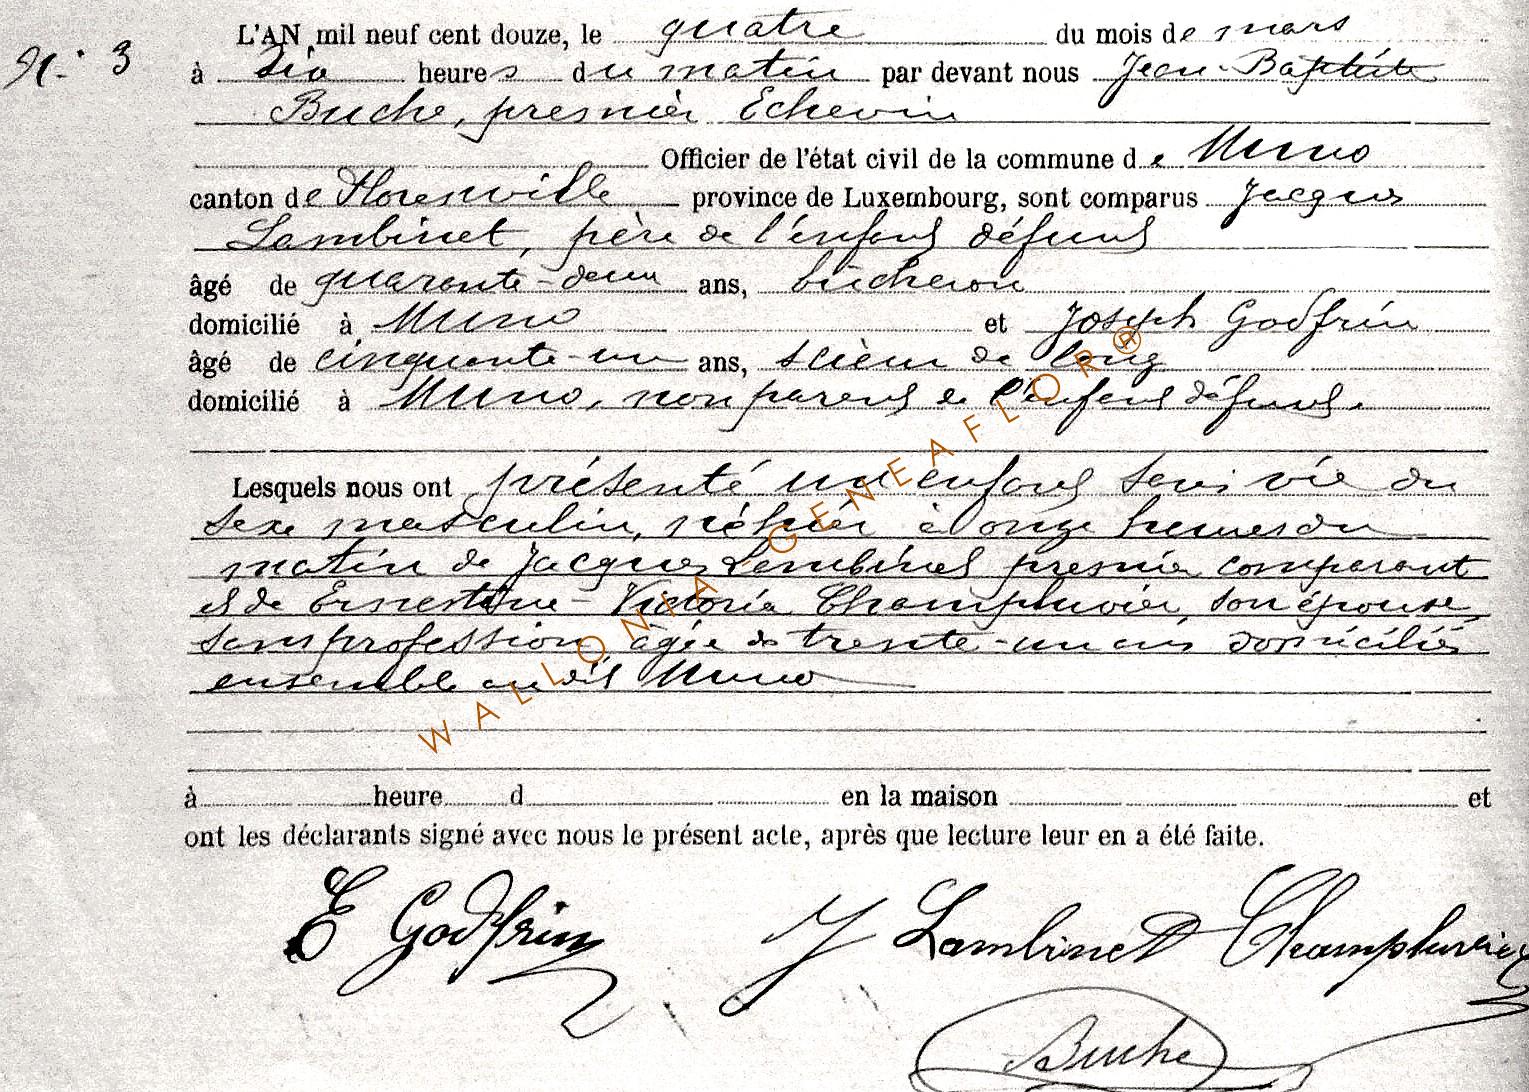 L'AN mil neuf cent douze, le quatre du mois de mars
N° 3
à dix heures du matin par devant nous Jean-Baptiste
Buche, premier Echevin
Officier de l'état civil de la commune de Muno
canton de Florenville province de Luxembourg, sont comparus Jacques
Lambinet, père de l'enfant défunt
âgé de quarante-deux ans, bûcheron
domicilié à Muno et Joseph Godfrin
âgé de cinquante-un ans, scieur de long
domicilié à Muno, non parent de l'enfant défunt.
Lesquels nous ont présenté un enfant sans vie du
sexe masculin, né hier à onze heures du
matin de Jacques Lambinet premier comparant
et de Ernestine-Victoria Champluvier, son épouse,
sans profession âgée de trente-un ans domiciliés
ensemble au dit Muno
à heure d en la maison et
ont les déclarants signé avec nous le présent acte, après que lecture leur en a été faite.
E Godfrin J Lambinet Champluvier
Buche
WALLONIA GENEAFLOR®